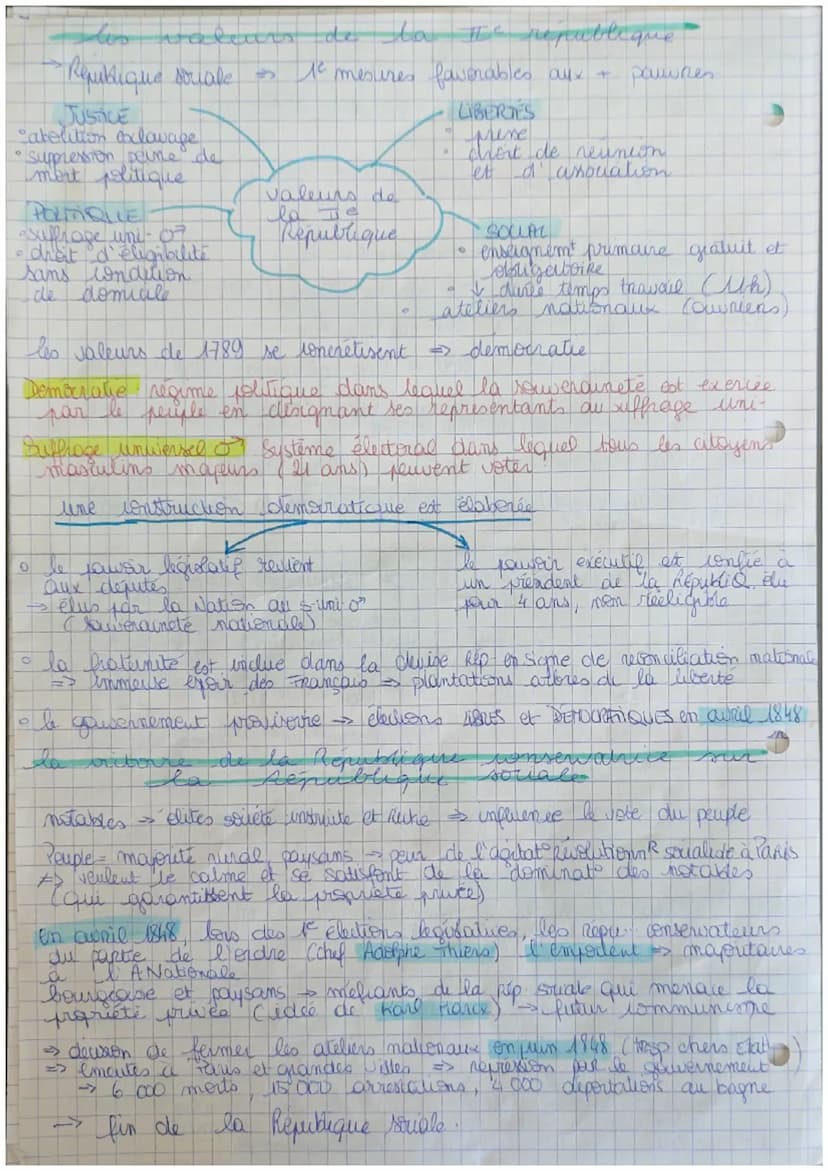 les valeurs de la IIe république
→ République sociale => 1e mesures favorables aux + pauvres
JUSTICE
• abolition esclavage
• suppression peine de
mort politique
LIBERTÉS
• presse
• droit de réunion
et d'association
valeurs de
la IIe
République
POLITIQUE
• suffrage uni- ♂
• droit d'éligibilité
sans condition
de domicile
SOCIAL
• enseignemt primaire gratuit et
obligatoire
• ↓ durée temps travail (11h)
• ateliers nationaux (ouvriers)
les valeurs de 1789 se concrétisent => démocratie
Démocratie régime politique dans lequel la souveraineté est exercée
par le peuple en désignant ses représentants au suffrage uni-
Suffrage universel ♂ Système électoral dans lequel tous les citoyens
masculins majeurs (21 ans) peuvent voter
une construction démocratique est élaborée
• le pouvoir législatif revient
aux députés
→ élus par la Nation au s-uni ♂
(souveraineté nationale)
le pouvoir exécutif est confié à
un président de la RépubliQ élu
pour 4 ans, non rééligible
• la fraternité est inclue dans la devise Rép- en signe de réconciliation nationale
=> immense espoir des Français => plantations arbres de la liberté
• le gouvernement provisoire → élections LIBRES et DÉMOCRATIQUES en avril 1848
la victoire de la République conservatrice sur
la République sociale
notables → élites société instruite et riche => influence le vote du peuple
Peuple = majorité rural, paysans → peur de l'agitat° révolutionnR socialiste à Paris
=> veulent le calme et se satisfont de la dominat° des notables
(qui garantissent la propriété privée)
En avril 1848, lors des 1e élections législatives, les répu- conservateurs
du parti de l'ordre (chef Adolphe Thiers) l'emportent => majoritaires
à l'ANationale
bourgeoise et paysans → méfiants de la rép sociale qui menace la
propriété privée (idée de Karl Marx) → futur communisme
=> décision de fermer les ateliers nationaux en juin 1848 (trop chers Etat)
=> émeutes à Paris et grandes villes => répression par le gouvernement
→ 6 000 morts, 15 000 arrestations, 4 000 déportations au bagne
→ fin de la République sociale.